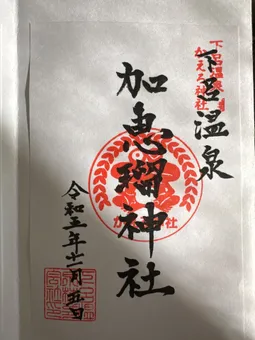 下呂温泉
加恵瑠神社
令和五年十一月五日
かえる神社